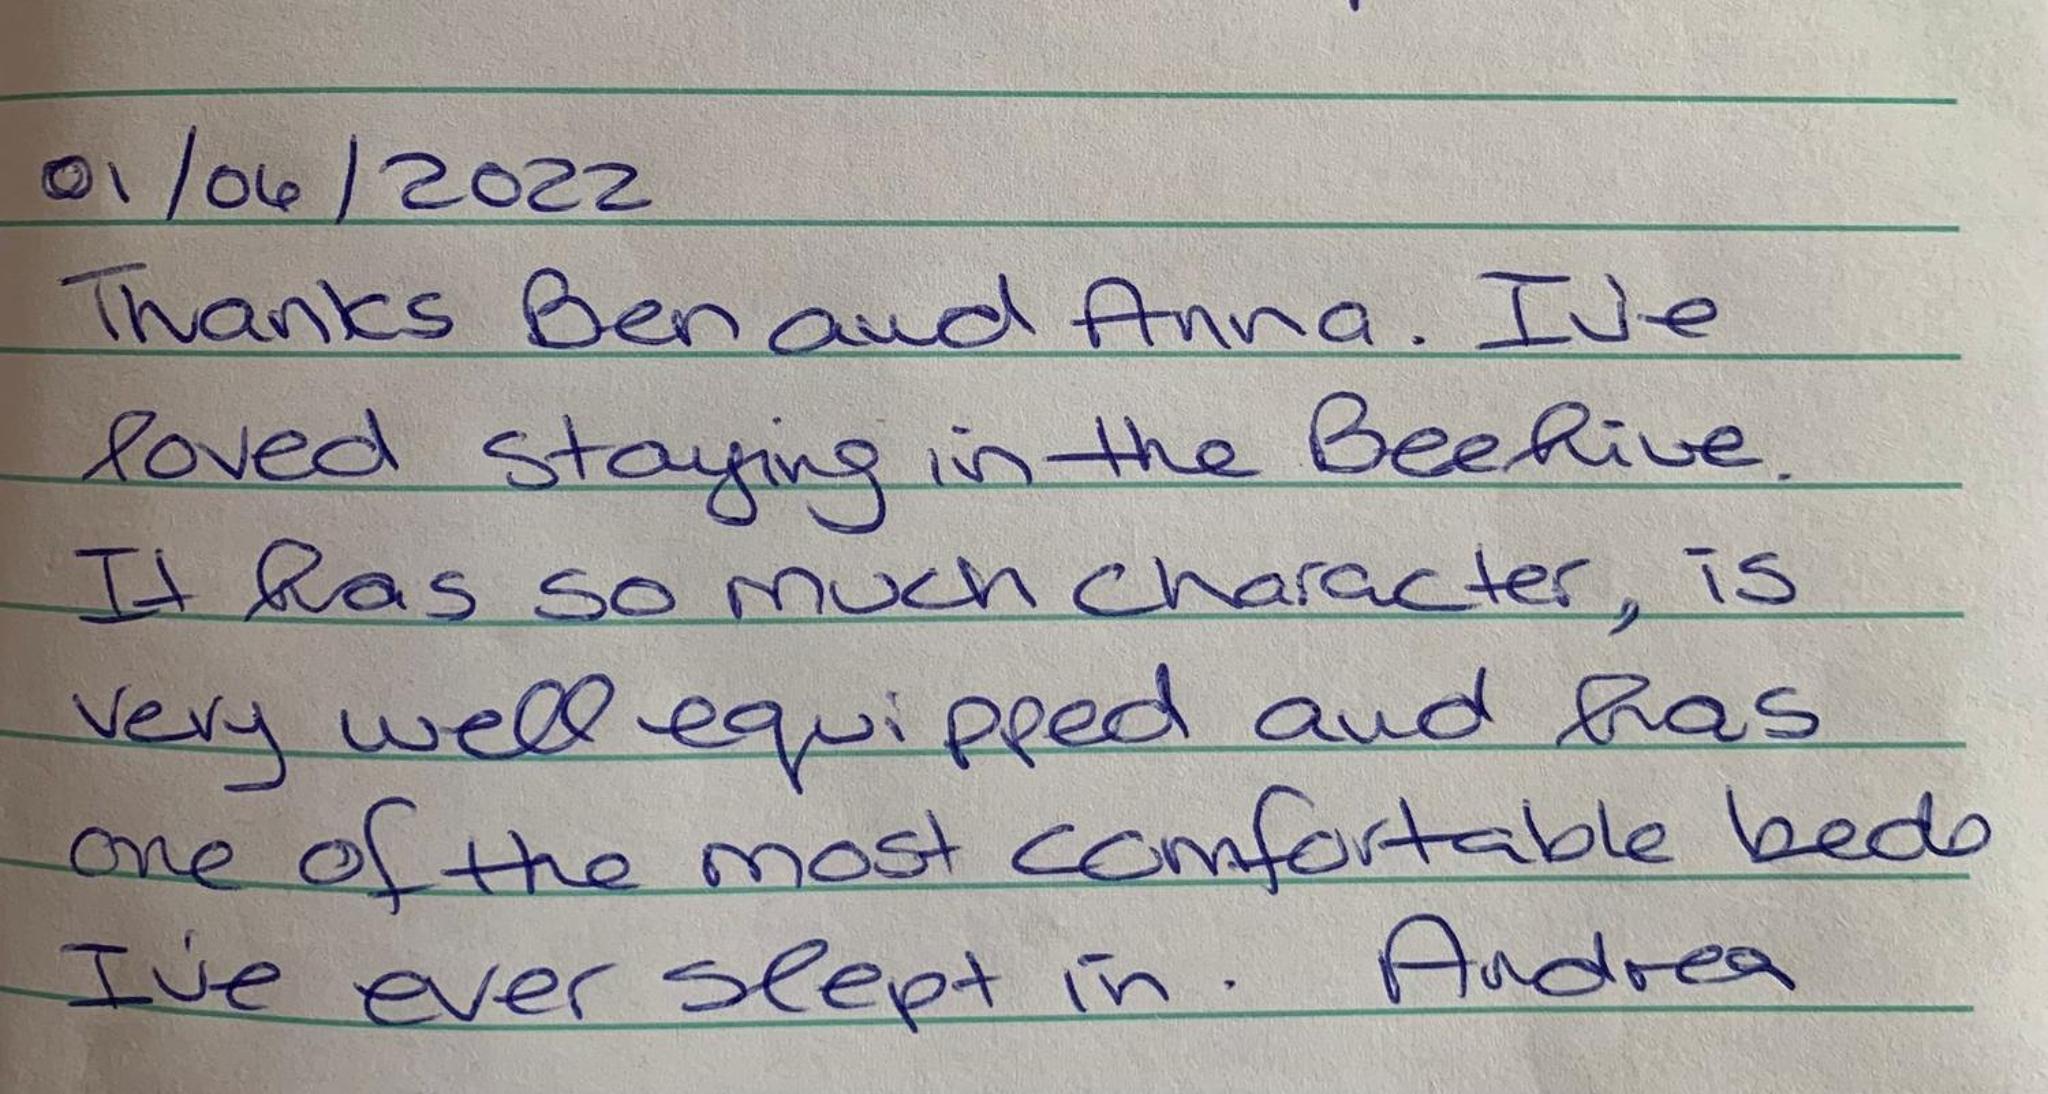 01/06/2022
Thanks Ben and Anna. I've
loved staying in the Beehive.
It has so much character, is
very well equipped and has
one of the most comfortable beds
I've ever slept in. Andrea